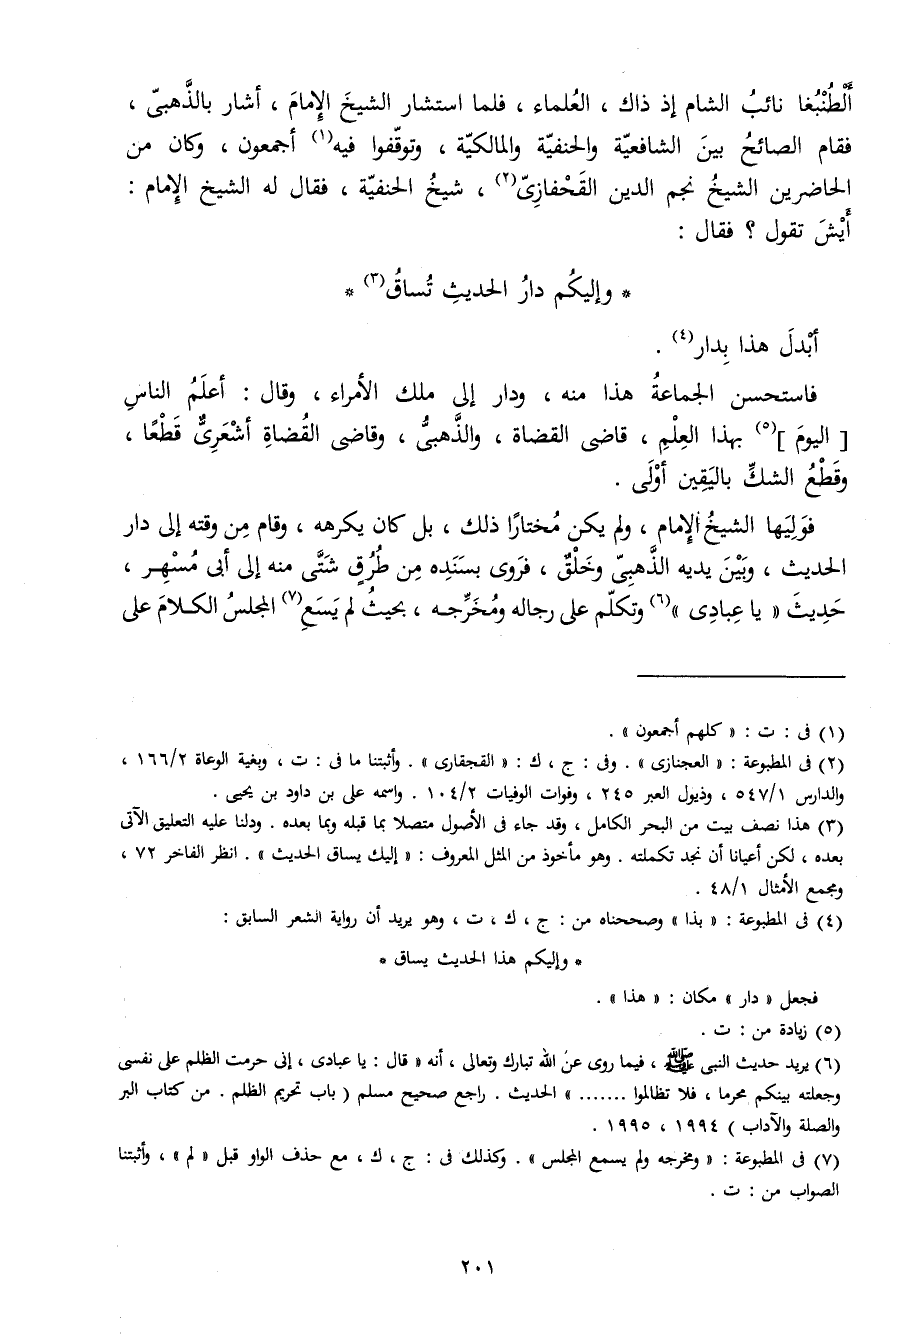 أَلْطُنْبُغا نائبُ الشام إذ ذاك ، العُلماء ، فلما استشار الشيخَ الإِمامَ ، أشار بالذَّهبىّ ،
فقام الصائحُ بينَ الشافعيّة والحنفيّة والمالكيّة ، وتوقّفوا فيه(١) أجمعون ، وكان من
الحاضرين الشيخُ نجم الدين القَحْفازِىّ(٢) ، شيخُ الحنفيّة ، فقال له الشيخ الإِمام :
أَيْشَ تقول ؟ فقال :
* وإليكُم دارُ الحديثِ تُساقُ(٣) *
أبْدلَ هذا بِدار(٤) .
فاستحسن الجماعةُ هذا منه ، ودار إلى ملك الأمراء ، وقال : أعلَمُ الناسِ
[ اليومَ ](٥) بهذا العِلْمِ ، قاضى القضاة ، والذَّهبىُّ ، وقاضى القُضاةِ أشْعَرِىٌّ قَطْعًا ،
وقَطْعُ الشكِّ باليَقِين أوْلَى .
فوَلِيَها الشيخُ الإِمام ، ولم يكن مُختارًا ذلك ، بل كان يكرهه ، وقام مِن وقته إلى دار
الحديث ، وبَيْنَ يديه الذَّهبىّ وخَلْقٌ ، فرَوى بسَنَدِه مِن طُرُقٍ شَتَّى منه إلى أبى مُسْهِر ،
حَدِيثَ « يا عِبادِى »(٦) وتكلّم على رجاله ومُخَرِّجه ، بحيثُ لم يَسَعِ(٧) المجلسُ الكلامَ على
(١) فى : ت : « كلهم أجمعون » .
(٢) فى المطبوعة : « العجنازى » . وفى : ج ، ك : « القجقارى » . وأثبتنا ما فى : ت ، وبغية الوعاة ١٦٦/٢ ،
والدارس ٥٤٧/١ ، وذيول العبر ٢٤٥ ، وفوات الوفيات ١٠٤/٢ . واسمه على بن داود بن يحيى .
(٣) هذا نصف بيت من البحر الكامل ، وقد جاء فى الأصول متصلا بما قبله وبما بعده . ودلنا عليه التعليق الآتى
بعده ، لكن أعيانا أن نجد تكملته . وهو مأخوذ من المثل المعروف : « إليك يساق الحديث » . انظر الفاخر ٧٢ ،
ومجمع الأمثال ٤٨/١ .
(٤) فى المطبوعة : « بذا » وصححناه من : ج ، ك ، ت ، وهو يريد أن رواية الشعر السابق :
* وإليكم هذا الحديث يساق *
فجعل « دار » مكان : « هذا » .
(٥) زيادة من : ت .
(٦) يريد حديث النبى ﷺ ، فيما روى عن الله تبارك وتعالى ، أنه « قال : يا عبادى ، إنى حرمت الظلم على نفسى
وجعلته بينكم محرما ، فلا تظالموا ....... » الحديث . راجع صحيح مسلم ( باب تحريم الظلم . من كتاب البر
والصلة والآداب ) ١٩٩٤ ، ١٩٩٥ .
(٧) فى المطبوعة : « ومخرجه ولم يسمع المجلس » . وكذلك فى : ج ، ك ، مع حذف الواو قبل « لم » ، وأثبتنا
الصواب من : ت .
٢٠١